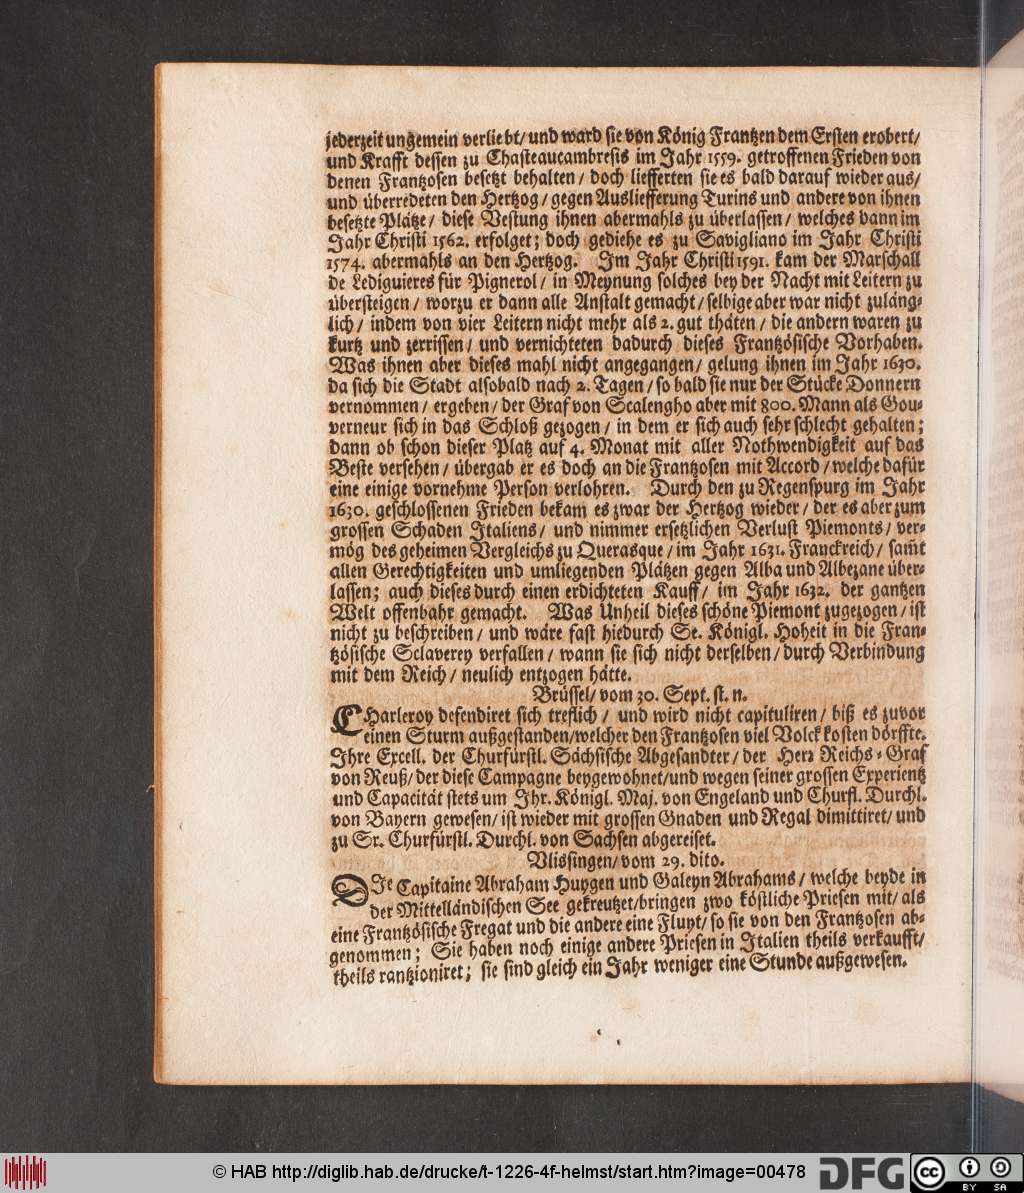 jederzeit ungemein verliebt/ und ward sie von König Frantzen dem Ersten erobert/
und Krafft dessen zu Chasteaucambresis im Jahr 1559. getroffenen Frieden von
denen Frantzosen besetzt behalten / doch liefferten sie es bald darauf wieder aus/
und überredeten den Hertzog / gegen Ausliefferung Turins und andere von ihnen
besetzte Plätze / diese Vestung ihnen abermahls zu überlassen / welches dann im
Jahr Christi 1562. erfolget; doch gediehe es zu Savigliano im Jahr Christi
1574. abermahls an den Hertzog. Im Jahr Christi 1591. kam der Marschall
de Lediguieres für Pignerol / in Meynung solches bey der Nacht mit Leitern zu
übersteigen / worzu er dann alle Anstalt gemacht / selbige aber war nicht zuläng-
lich / indem von vier Leitern nicht mehr als 2. gut thäten / die andern waren zu
kurtz und zerrissen / und vernichteten dadurch dieses Frantzösische Vorhaben.
Was ihnen aber dieses mahl nicht angegangen / gelung ihnen im Jahr 1630.
da sich die Stadt alsobald nach 2. Tagen / so bald sie nur der Stücke Donnern
vernommen / ergeben / der Graf von Scalengho aber mit 800. Mann als Gou-
verneur sich in das Schloß gezogen / in dem er sich auch sehr schlecht gehalten;
dann ob schon dieser Platz auf 4. Monat mit aller Nothwendigkeit auf das
Beste versehen / übergab er es doch an die Frantzosen mit Accord / welche dafür
eine einige vornehme Person verlohren. Durch den zu Regenspurg im Jahr
1630. geschlossenen Frieden bekam es zwar der Hertzog wieder / der es aber zum
grossen Schaden Italiens / und nimmer ersetzlichen Verlust Piemonts / ver-
mög des geheimen Vergleichs zu Querasque / im Jahr 1631. Franckreich / sam̃t
allen Gerechtigkeiten und umliegenden Plätzen gegen Alba und Albezane über-
lassen; auch dieses durch einen erdichteten Kauff / im Jahr 1632. der gantzen
Welt offenbahr gemacht. Was Unheil dieses schöne Piemont zugezogen / ist
nicht zu beschreiben / und wäre fast hiedurch Se. Königl. Hoheit in die Fran-
tzösische Sclaverey verfallen / wann sie sich nicht derselben / durch Verbindung
mit dem Reich / neulich entzogen hätte.
Brüssel/ vom 30. Sept. st. n.
CHarleroy defendiret sich treflich / und wird nicht capituliren / biß es zuvor
einen Sturm außgestanden/welcher den Frantzosen viel Volck kosten dörffte.
Ihre Excell. der Churfürstl. Sächsische Abgesandter / der Herꝛ Reichs-Graf
von Reuß/ der diese Campagne beygewohnet/und wegen seiner grossen Experientz
und Capacität stets um Ihr. Königl. Maj. von Engeland und Churfl. Durchl.
von Bayern gewesen / ist wieder mit grossen Gnaden und Regal dimittiret / und
zu Sr. Churfürstl. Durchl. von Sachsen abgereiset.
Vlissingen/ vom 29. dito.
DIe Capitaine Abraham Huygen und Galeyn Abrahams / welche beyde in
der Mittelländischen See gekreutzet/bringen zwo köstliche Priesen mit/ als
eine Frantzösische Fregat und die andere eine Fluyt/ so sie von den Frantzosen ab-
genommen; Sie haben noch einige andere Priesen in Italien theils verkaufft/
theils rantzioniret; sie sind gleich ein Jahr weniger eine Stunde außgewesen.
© HAB http://diglib.hab.de/drucke/t-1226-4f-helmst/start.htm?image=00478
DFG
cc BY SA